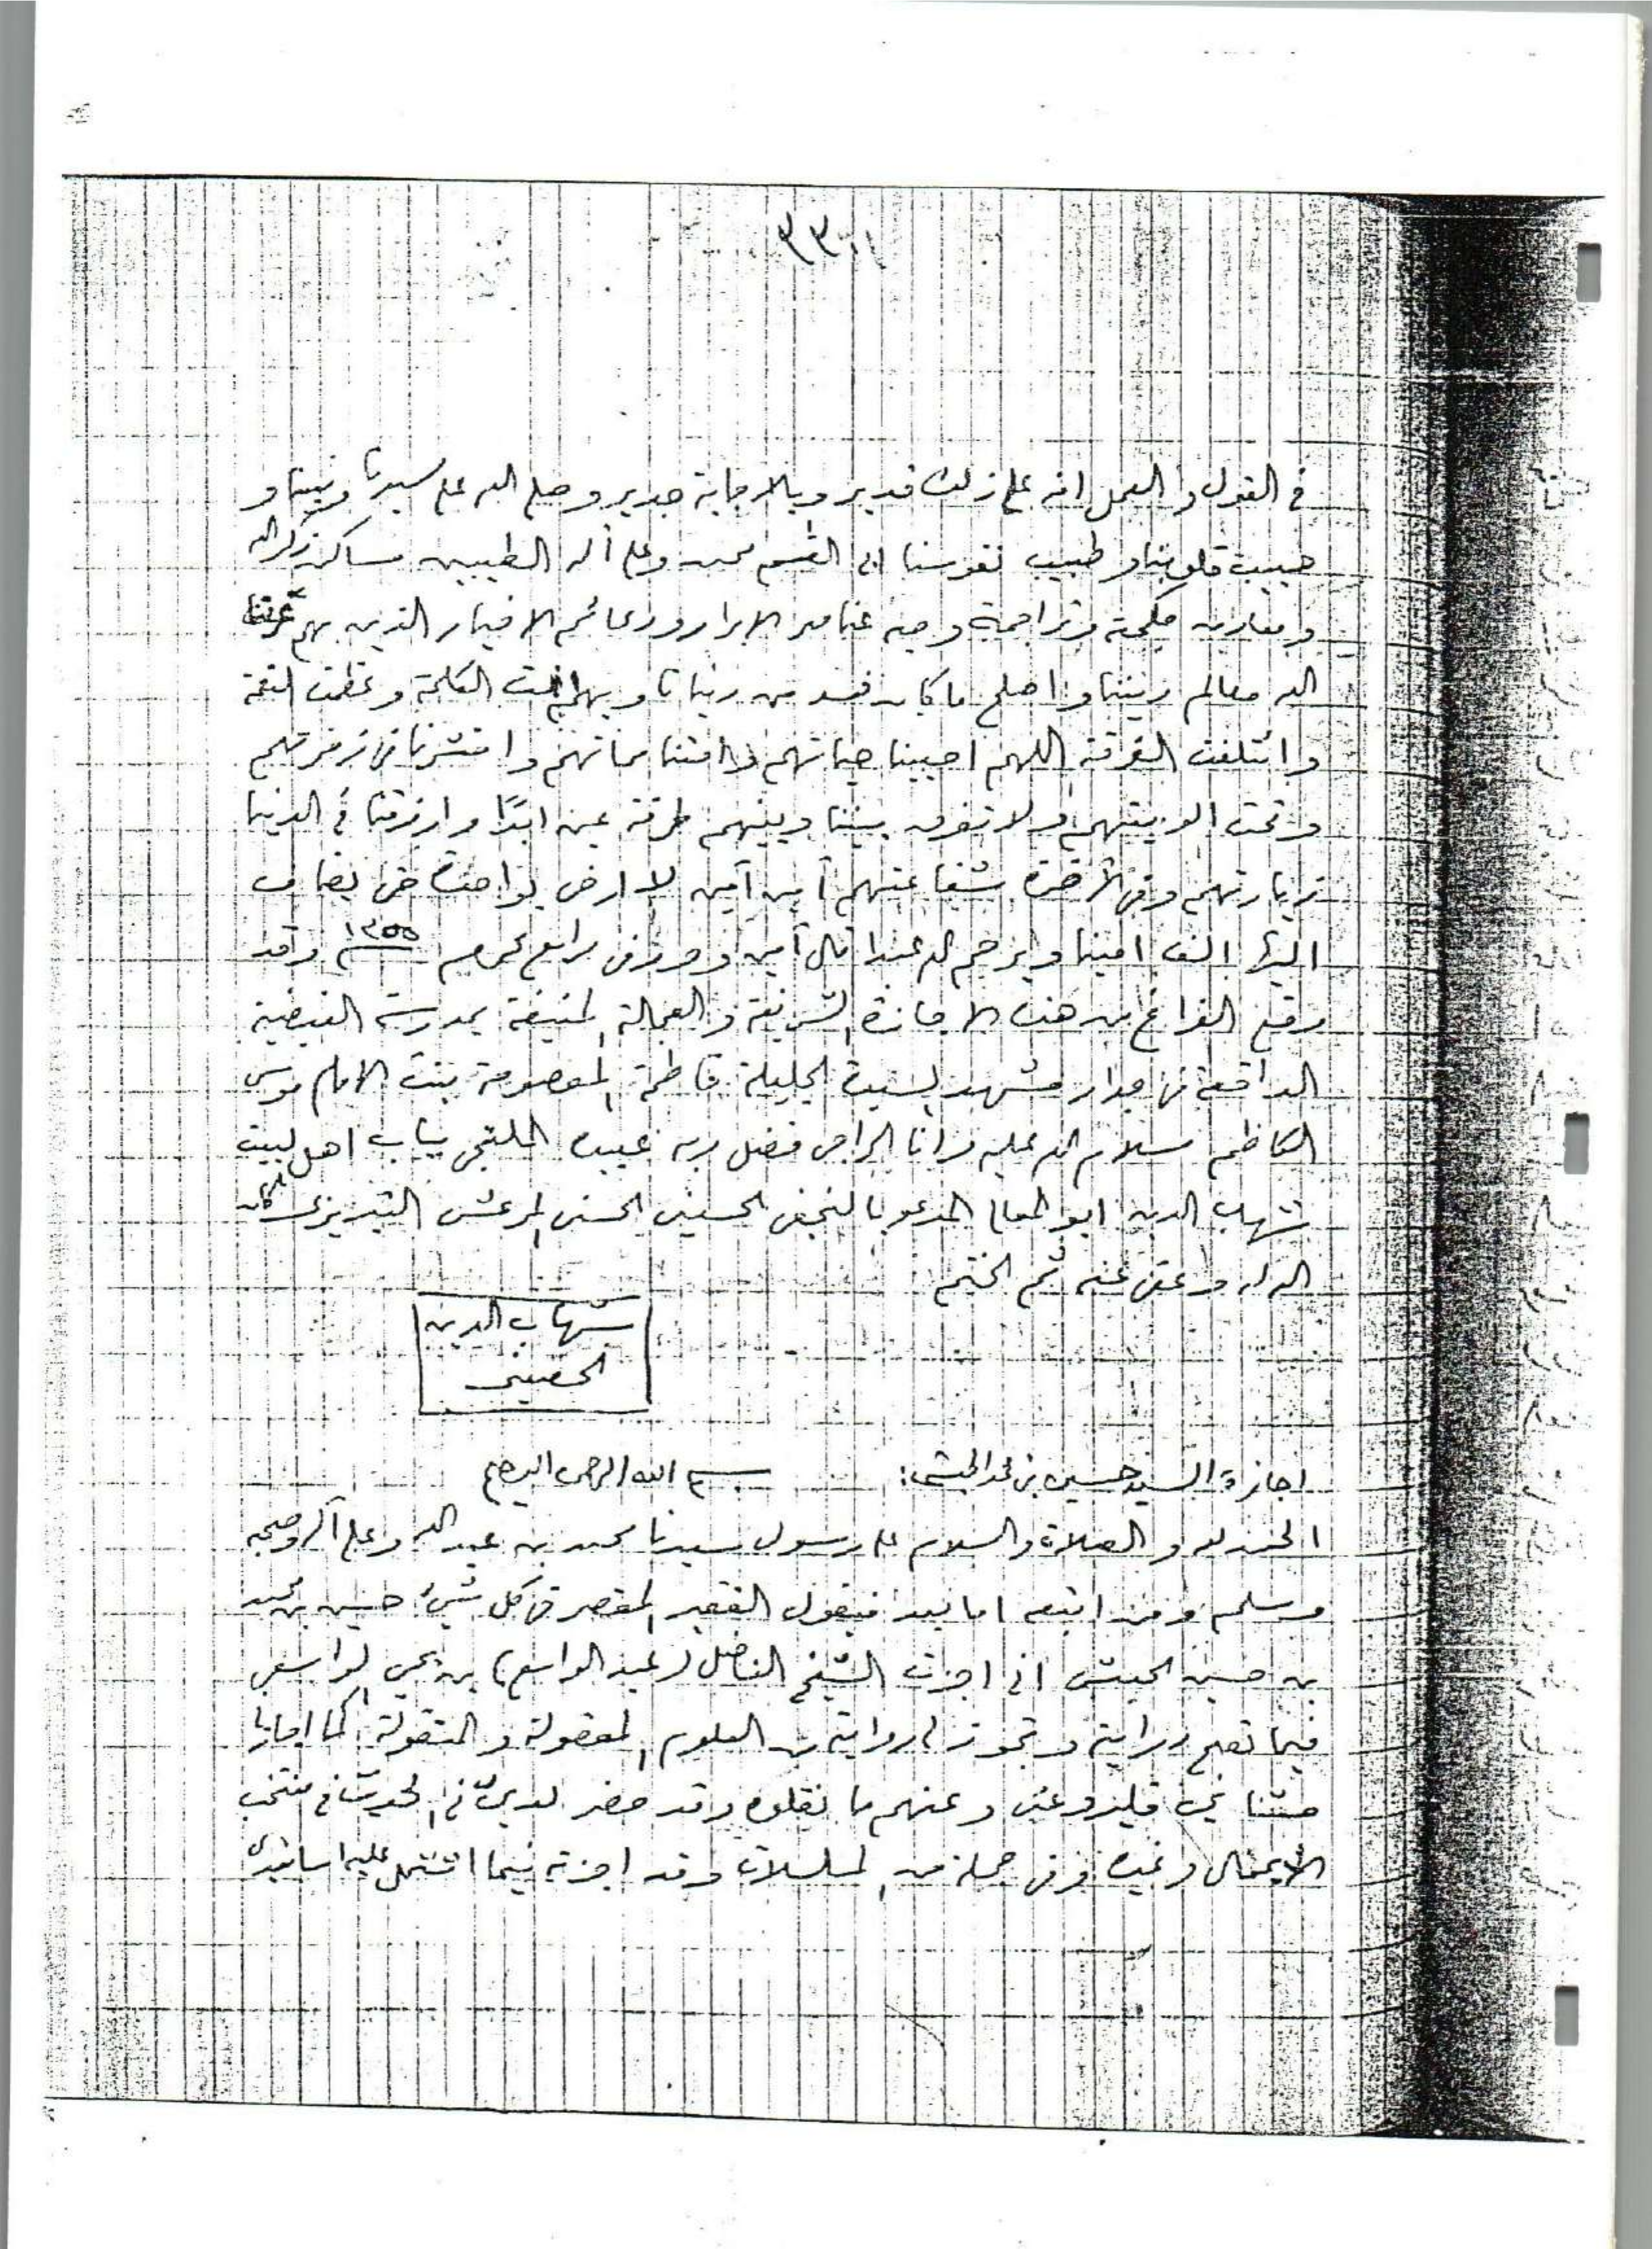 ٣٣
في القول والعمل انه على ذلك قدير وبالاجابة جدير وصلى الله على سيدنا ونبينا و
حبيب قلوبنا وطبيب نفوسنا ابي القسم محمد وعلى آله الطيبين مساكن ذكر الله
ومعادن حكمته وتراجمة وحيه عناصر الابرار ودعائم الاخيار الذين بهم عرفنا
الله معالم ديننا واصلح ما كان فسد من دنيانا وبهم تمت الكلمة وعظمت النعمة
وائتلفت الفرقة اللهم احيينا حياتهم وامتنا مماتهم واحشرنا في زمرتهم
وتحت الويتهم ولا تفرق بيننا وبينهم طرفة عين ابدًا وارزقنا في الدنيا
زيارتهم وفي الآخرة شفاعتهم آمين آمين لا ارضى بواحدة حتى يضاف
اليها الف امينا ويرحم الله عبدا قال آمين وحرر في رابع محرم ١٣٥٥ وقد
وقع الفراغ من هذه الاجازة الشريفة والعجالة المنيفة بمدرسة الفيضية
الواقعة في جوار مشهد السيدة الجليلة فاطمة المعصومة بنت الامام موسى
الكاظم سلام الله عليه وانا الراجي فضل ربه عبيده الملتجي بباب اهل البيت
شهاب الدين ابو المعالي المدعو بالنجفي الحسيني الحسني المرعشي التبريزي كان
الله له وعفى عنه تم الختم
شهاب الدين
الحسيني
اجازة السيد حسين بن محمد الحبشي: بسم الله الرحمن الرحيم
الحمد لله والصلاة والسلام على رسول سيدنا محمد بن عبد الله وعلى آله وصحبه
وسلم ومن اتبعه اما بعد فيقول الفقير المقصر في كل شيء حسين بن محمد
بن حسين الحبشي اني اجزت الشيخ الفاضل (عبد الواسع) بن يحيى الواسعي
فيما تصح درايته وتجوز لي روايته من العلوم المعقولة والمنقولة كما اجازنا
فليرو عني وعنهم ما نقلوه وقد حضر لدي في الحديث في منتخب
وغيره وفي جملة من المسلسلات وقد اجزته فيما اشتمل عليه اسانيدي